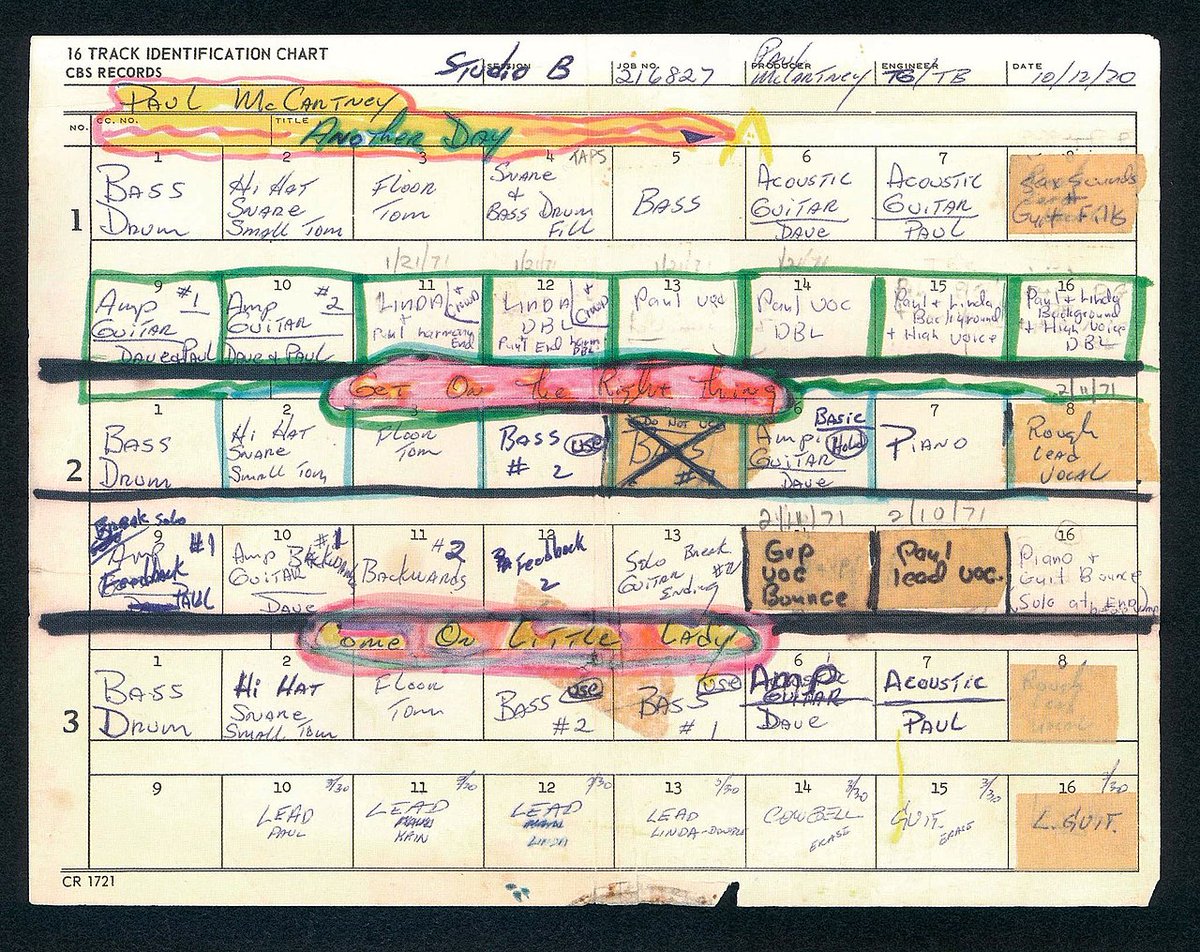 16 TRACK IDENTIFICATION CHART
CBS RECORDS
SESSION
Studio B
JOB NO.
216827
PRODUCER
Paul McCartney
ENGINEER
TG/TB
DATE
10/12/70
PAUL McCARTNEY
NO.
CC. NO.
TITLE
Another Day
A
1
1
BASS
DRUM
2
Hi HAT
SNARE
Small Tom
3
FLOOR
TOM
4 TAPS
SNARE
&
BASS DRUM
FILL
5
BASS
6
ACOUSTIC
GUITAR
DAVE
7
ACOUSTIC
GUITAR
PAUL
8
1/21/71
1/21/71
1/21/71
1/21/71
9
Amp #1
GUITAR
Dave & Paul
10
Amp #2
GUITAR
Dave & Paul
11
LINDA + Crowd
+
Paul harmony
End
12
LINDA + Crowd
DBL
Paul End harm
DBL
13
Paul voc
14
Paul VOC
DBL
15
Paul + Linda
Background
+ High Voice
16
Paul + Linda
Background
+ High Voice
DBL
Get On the Right thing
2/11/71
2
1
BASS
DRUM
2
Hi HAT
SNARE
Small Tom
3
FLOOR
TOM
4
BASS USE
# 2
DO NOT USE
BASS
6
BASIC
Amp
GUITAR Hold
DAVE
7
PIANO
8
Rough
Lead
VOCAL
2/10/71
9
Break Solo
Amp #1
Feedback
PAUL
10
Amp #1
GUITAR BACKWARDS
DAVE
11
#2
BACKWARDS
12
Feedback
2
13
Solo Break
GUITAR #2
Ending
Grp
voc
Bounce
Paul
lead voc.
16
Piano +
Guit Bounce
(Solo at End)
Come On Little Lady
3
1
BASS
DRUM
2
Hi HAT
SNARE
Small Tom
3
FLOOR
TOM
4
BASS USE
#2
BASS USE
# 1
6
AMP
GUITAR
DAVE
7
ACOUSTIC
PAUL
8
Rough
Lead
vocal
9
10 3/30
LEAD
PAUL
11 3/30
LEAD
MAIN
12 3/30
LEAD
LINDA
13 3/30
LEAD
LINDA-DOUBLE
14 3/30
COWBELL
ERASE
15 3/30
GUIT.
ERASE
16 3/30
L. GUIT.
CR 1721